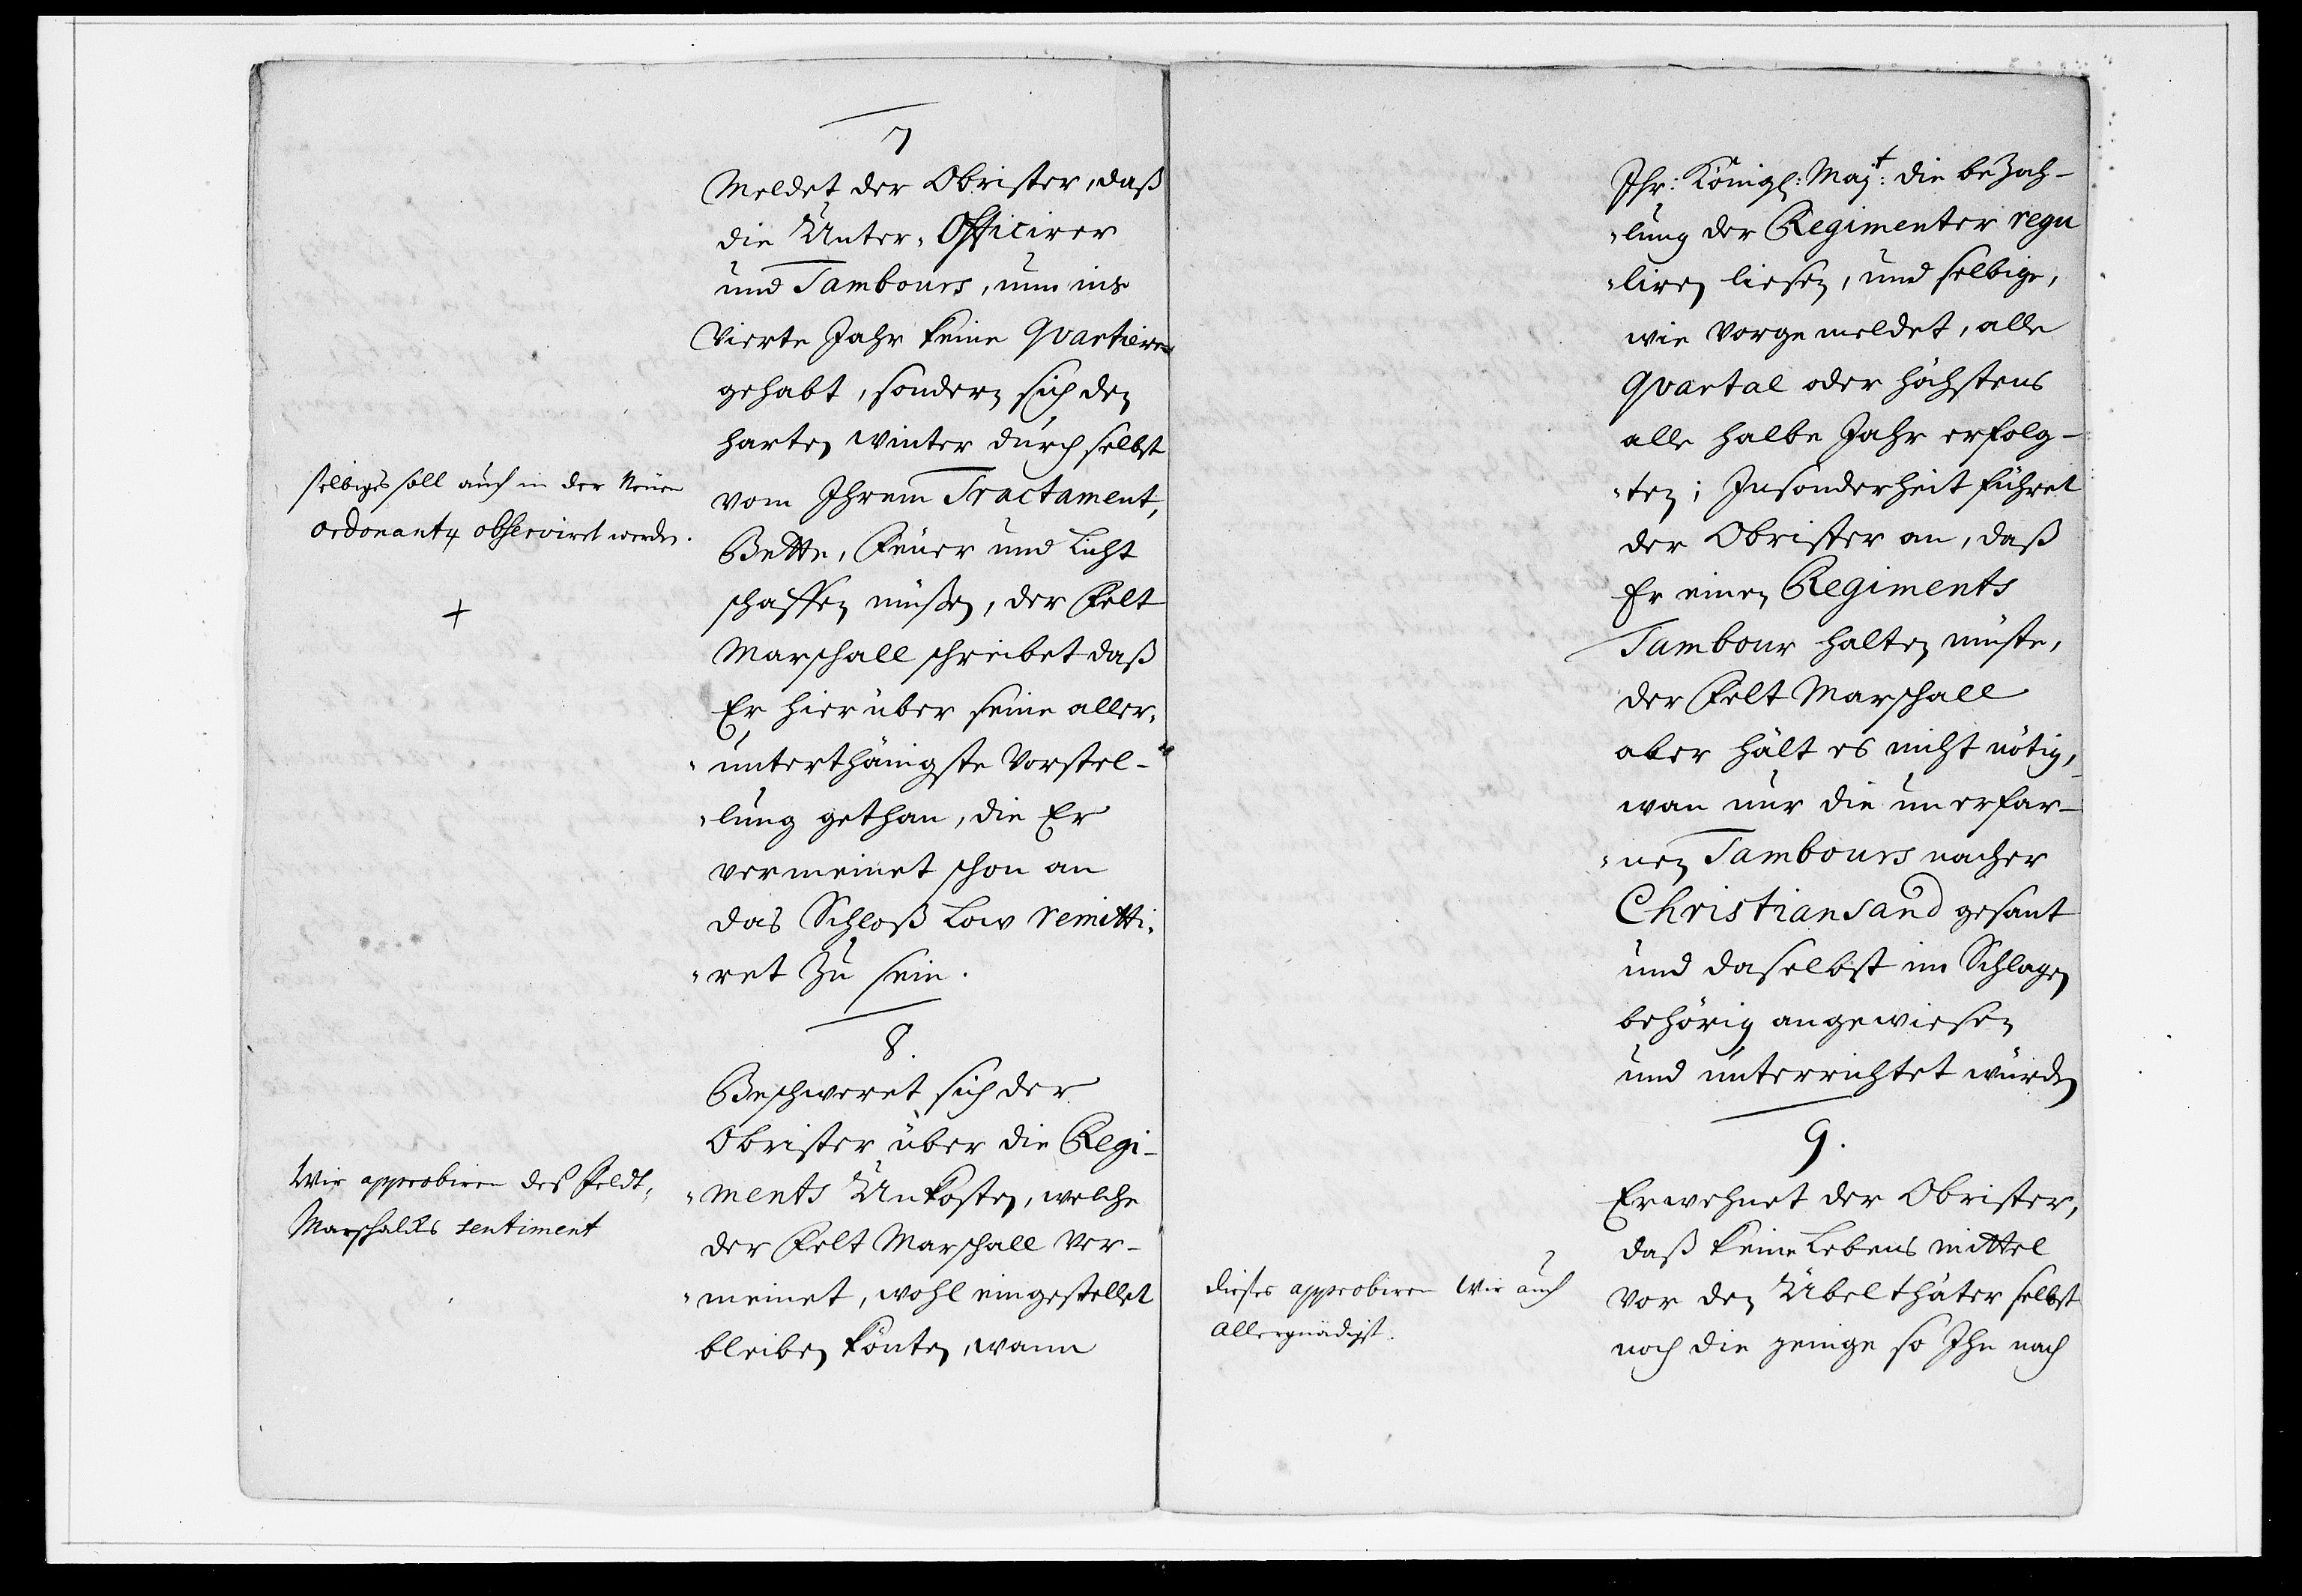 7
Meldet der Obrister, daß
die Unter-Officirer
und Tambours, nun ins
Vierte Jahr keine Quartiere
gehabt, sondern sich den
harten winter durch selbst
vom Ihrem Tractament,
Bette, Feüer und Licht
schaffen müßen, der Felt
Marschall schreibet daß
Er hierüber seine aller-
unterthänigste Vorstel-
lung gethan, die Er
vermeinet schon an
das Schloß Low remitti-
ret zu sein.
selbiges soll auch in der Neuen
ordonantz observiret werden.
+
8.
Beschweret sich der
Obrister über die Regi-
ments Unkosten, welche
der Felt Marschall Ver-
meinet, wohl eingestellet
bleiben könten, wann
Wir approbiren des Feldt-
Marschalks sentiment
Ihr: Königl: Majt: die bezah-
lung der Regimenter regu
liren liesen, und selbige,
wie Vorgemeldet, alle
Quartal oder höchstens
alle halbe Jahr erfolg-
ten; Insonderheit führet
der Obrister an, daß
Er einen Regiments
Tambour halten müste,
der Felt Marschall
aber hält es nicht nötig,
wan nur die unerfar-
nen Tambours nacher
Christiansand gesant
und daselbst im Schlagen
behörig angewiesen
und unterrichtet würden
9.
Erwehnet der Obrister,
daß keine Lebens mittel
vor den Übelthäter selbst
noch die jenige so Ihn nach
dieses approbiren Wir auch
Allergnädigst.